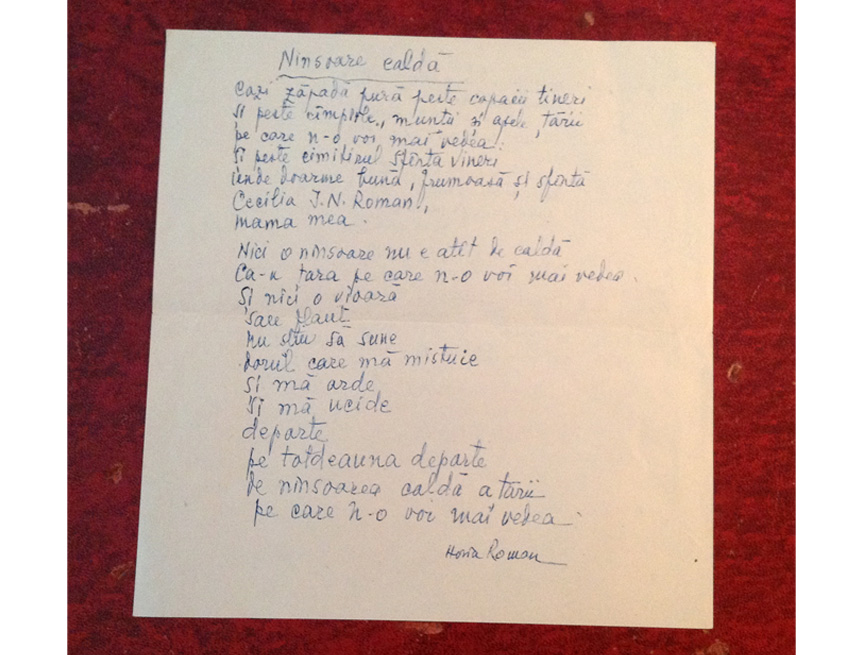 Ninsoare caldă
Cazi zăpadă pură peste copacii tineri
Și peste cîmpiile, munții și apele țării
pe care n-o voi mai vedea.
Și peste cimitirul sfînta vineri
unde doarme bună, frumoasă și sfîntă
Cecilia I.N. Roman,
mama mea.
Nici o ninsoare nu e atît de caldă
Ca-n țara pe care n-o voi mai vedea.
Și nici o vioară
sau flaut
nu știu să sune
dorul care mă mistuie
Și mă arde
Și mă ucide
departe
pe totdeauna departe
de ninsoarea caldă a țării
pe care n-o voi mai vedea.
Horia Roman